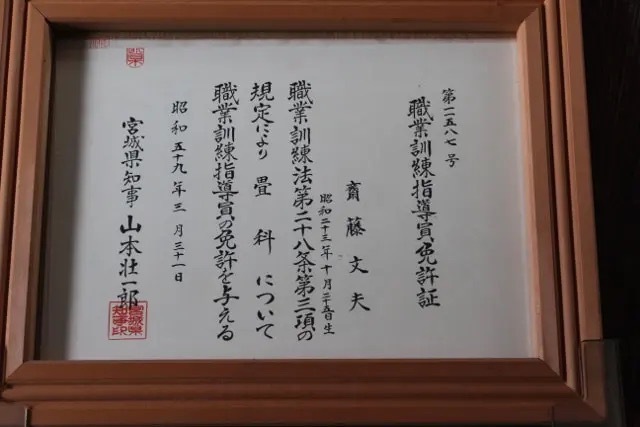 第一五八七号
職業訓練指導員免許証
齋藤文夫
昭和二十三年十月二十五日生
職業訓練法第二十八条第三項の
規定により畳科について
職業訓練指導員の免許を与える
昭和五十九年三月三十一日
宮城県知事 山本壮一郎
宮城県知事印